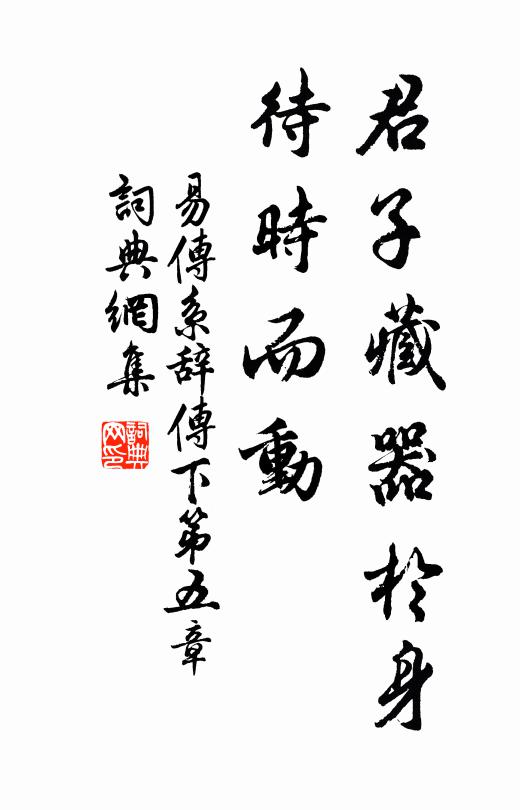 君子藏器於身
待時而動
易傳系辞傳下第五章
詞典網集
詞典网印